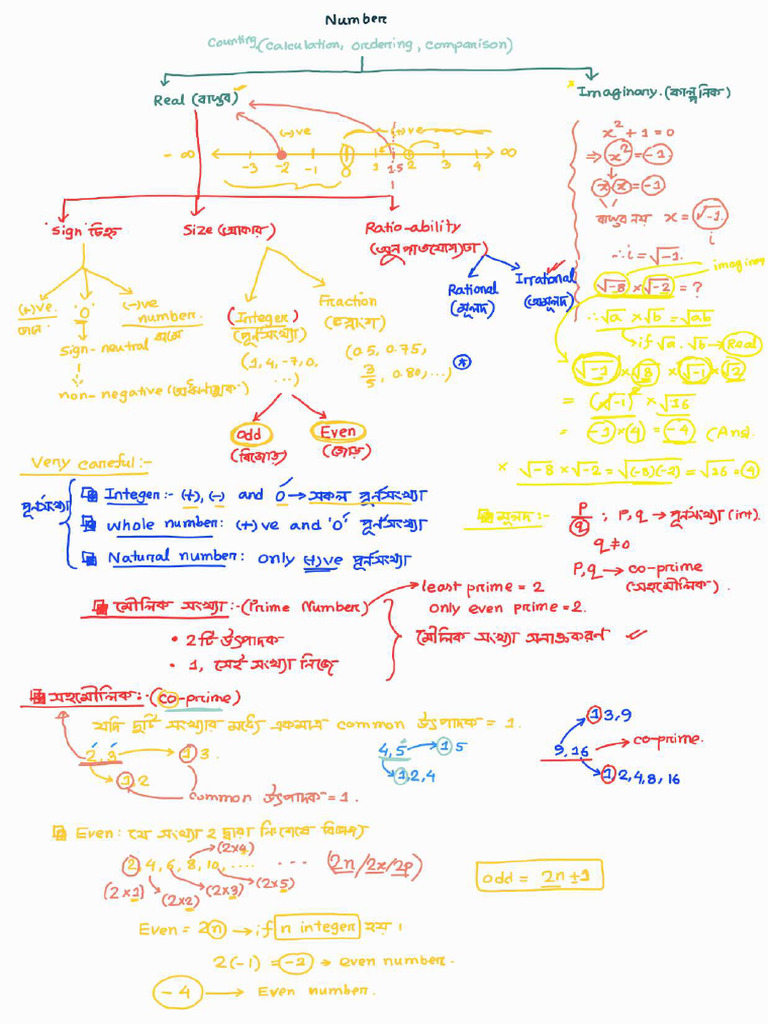 Number
Counting (calculation, ordering, comparison)
Real (বাস্তব)
Imaginary. (কাল্পনিক)
(-)ve (+)ve
- ∞ -3 -2 -1 0 1 1.5 2 3 4 ∞
x² + 1 = 0
⇒ x² = -1
x x = -1
বাস্তব নয় x = √-1.
i
∴ i = √-1.
imaginary
√-8 × √-2 = ?
∴ √a × √b = √ab
if √a . √b → Real
√-1 × √8 × √-1 × √2
= (√-1)² × √16
= -1 × 4 = -4 (Ans.
× √-8 × √-2 = √(-8)(-2) = √16 = 4
'Sign' চিহ্ন
Size (আকার)
Ratio-ability
(অনুপাতযোগ্যতা)
(+)ve. '0' (-)ve
number.
sign-neutral
non-negative (অঋণাত্মক)
(Integer)
(পূর্ণসংখ্যা)
(1, 4, -7, 0,
...)
Fraction
(ভগ্নাংশ)
(0.5, 0.75,
3/5, 0.80, ...)
Rational
(মূলদ)
Irrational
(অমূলদ)
Odd
(বিজোড়)
Even
(জোড়)
Very careful:-
পূর্ণসংখ্যা
Integer:- (+), (-) and 0 → সকল পূর্ণসংখ্যা
whole number: (+)ve and '0' পূর্ণসংখ্যা
Natural number: only (+)ve পূর্ণসংখ্যা
মূলদ:- p/q ; P, q → পূর্ণসংখ্যা (int).
q ≠ 0
P, q → co-prime
(সহমৌলিক).
মৌলিক সংখ্যা:- (Prime Number)
least prime = 2
only even prime = 2.
• 2টি উৎপাদক
• 1, সেই সংখ্যা নিজে
মৌলিক সংখ্যা সনাক্তকরণ
সহমৌলিক:- (co-prime)
যদি দুটি সংখ্যার মধ্যে একমাত্র common উৎপাদক = 1.
2, 3 → 1 3.
1, 2
common উৎপাদক = 1.
4, 5 → 1 5
1, 2, 4
1 3, 9
9, 16 → co-prime.
1 2, 4, 8, 16
Even: যে সংখ্যা 2 দ্বারা নিঃশেষে বিভাজ্য
(2×4)
2 4, 6, 8, 10, .... ... (2n/2x/2p)
(2×1) (2×2) (2×3) (2×5)
odd = 2n ± 1
Even = 2n → if n integer হয়।
2(-1) = -2 → even number.
-4 → Even number.